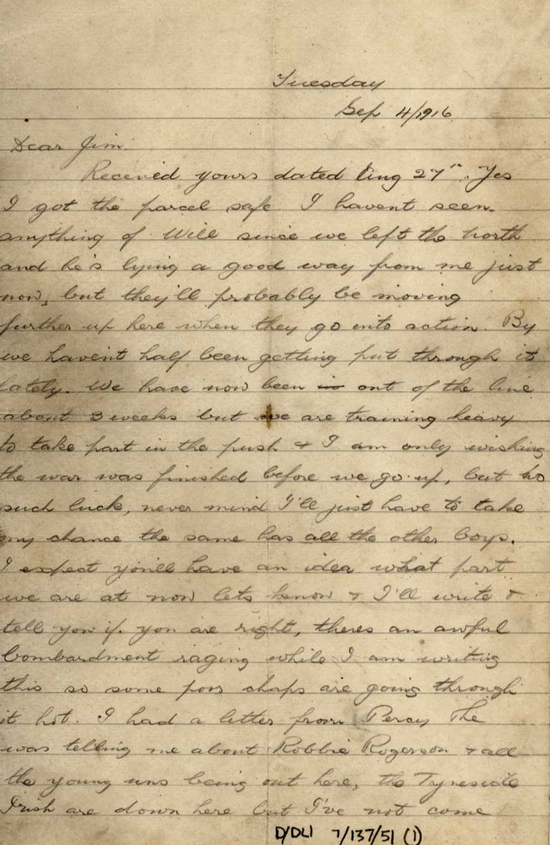 Tuesday
Sep 4/1916
Dear Jim
Received yours dated Aug 27th. Yes
I got the parcel safe I havent seen
anything of Will since we left the north
and he's lying a good way from me just
now, but they'll probably be moving
further up here when they go into action. By
we havent half been getting put through it
lately. We have now been in out of the line
about 3 weeks but we are training heavy
to take part in the push & I am only wishing
the war was finished before we go up, but no
such luck, never mind I'll just have to take
my chance the same has all the other boys.
I expect youll have an idea what part
we are at now lets know & I'll write &
tell you if you are right, theres an awful
bombardment raging while I am writing
this so some poor chaps are going through
it hot. I had a letter from Percy The
was telling me about Robbie Rogerson & all
the young uns being out here, the Tyneside
Irish are down here but I've not come
D/DLI 7/137/51 (1)